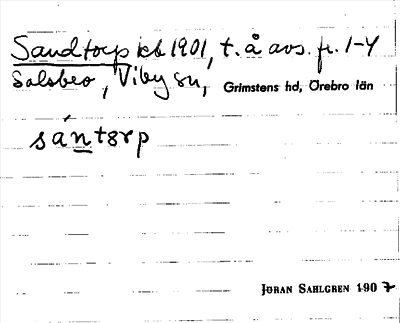 Sandtorp kb 1901, t. å avs. fr. 1-4
Salsbro, Viby sn, Grimstens hd, Örebro län
sántorp
JÖRAN SAHLGREN 1907